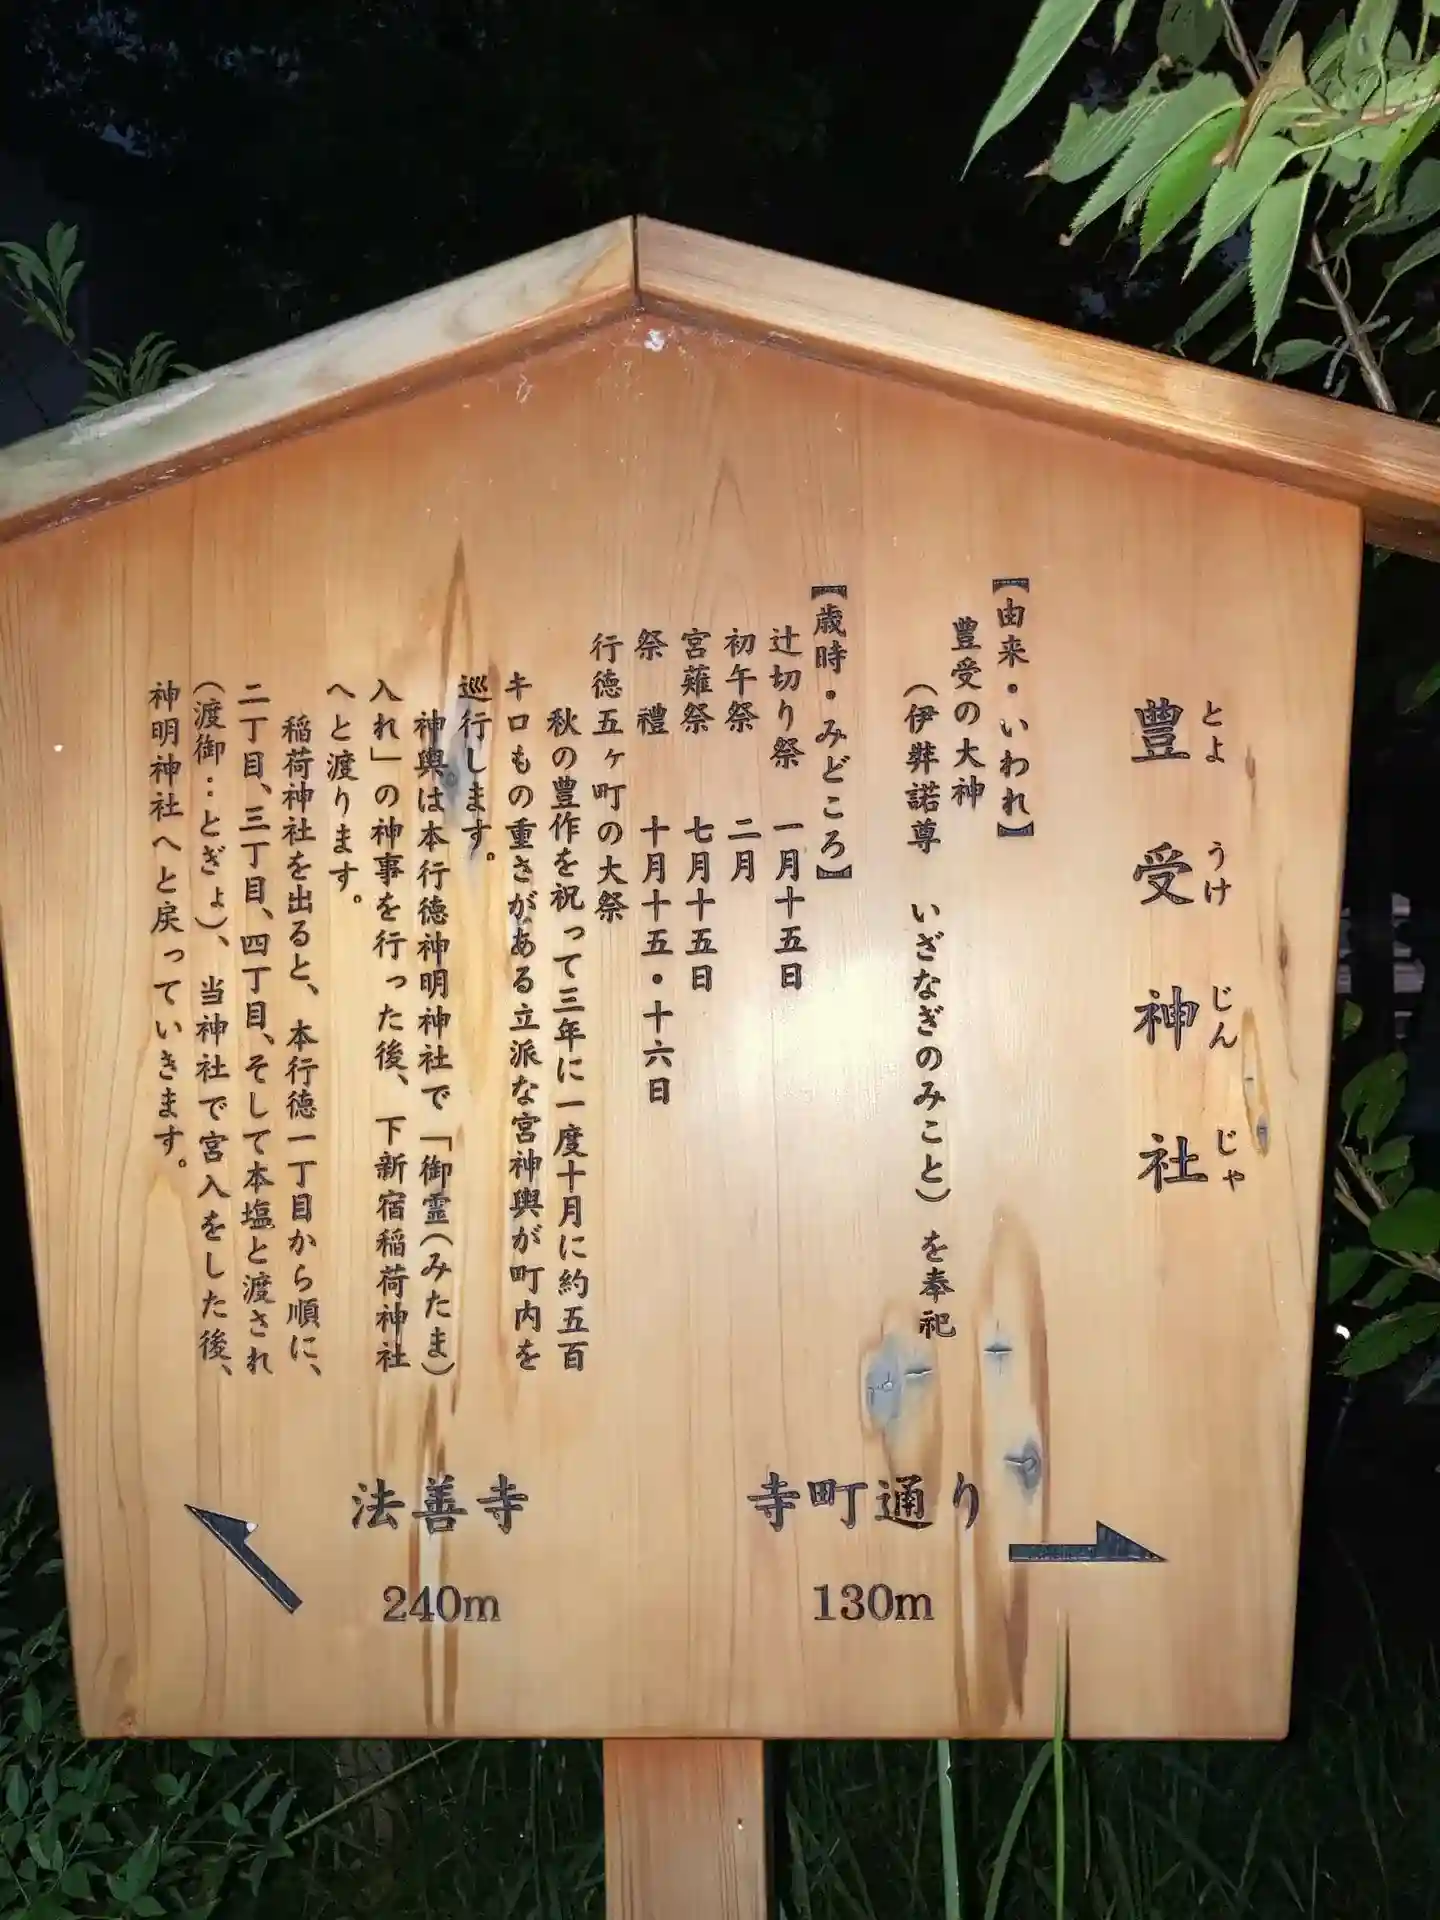 豊受神社
とようけじんじゃ
【由来・いわれ】
豊受の大神
(伊弉諾尊 いざなぎのみこと)を奉祀
【歳時・みどころ】
辻切り祭 一月十五日
初午祭 二月
宮薙祭 七月十五日
祭禮 十月十五・十六日
行徳五ヶ町の大祭
秋の豊作を祝って三年に一度十月に約五百
キロもの重さがある立派な宮神輿が町内を
巡行します。
神輿は本行徳神明神社で「御霊(みたま)
入れ」の神事を行った後、下新宿稲荷神社
へと渡ります。
稲荷神社を出ると、本行徳一丁目から順に、
二丁目、三丁目、四丁目、そして本塩と渡され
(渡御:とぎょ)、当神社で宮入をした後、
神明神社へと戻っていきます。
寺町通り
130m
法善寺
240m